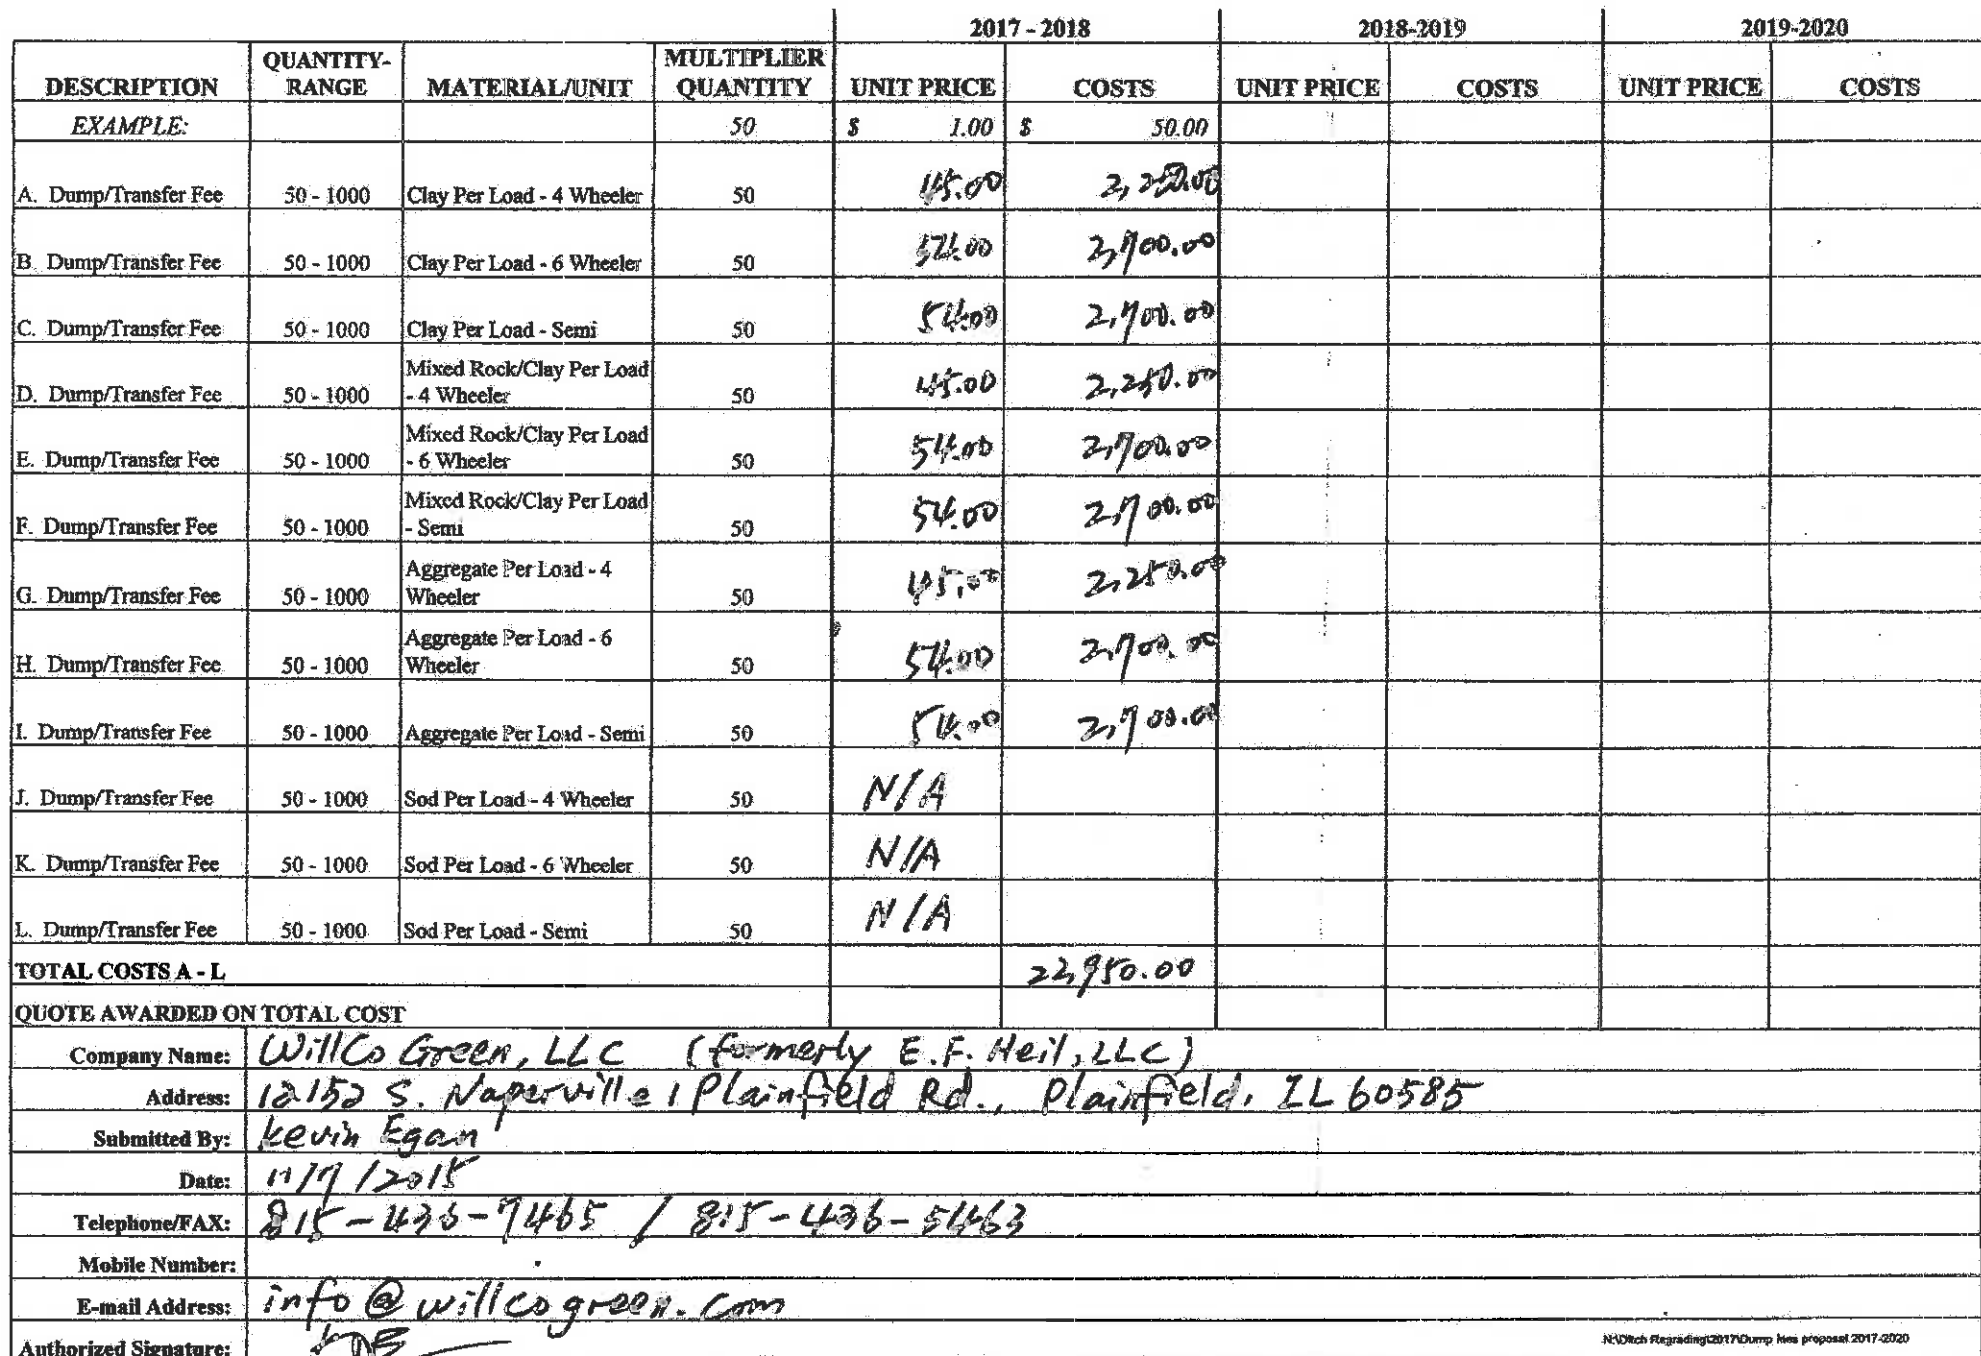 2017 - 2018 2018-2019 2019-2020
DESCRIPTION QUANTITY-RANGE MATERIAL/UNIT MULTIPLIER QUANTITY UNIT PRICE COSTS UNIT PRICE COSTS UNIT PRICE COSTS
EXAMPLE: 50 $ 1.00 $ 50.00
A. Dump/Transfer Fee 50 - 1000 Clay Per Load - 4 Wheeler 50 45.00 2,250.00
B. Dump/Transfer Fee 50 - 1000 Clay Per Load - 6 Wheeler 50 54.00 2,700.00
C. Dump/Transfer Fee 50 - 1000 Clay Per Load - Semi 50 54.00 2,700.00
D. Dump/Transfer Fee 50 - 1000 Mixed Rock/Clay Per Load - 4 Wheeler 50 45.00 2,250.00
E. Dump/Transfer Fee 50 - 1000 Mixed Rock/Clay Per Load - 6 Wheeler 50 54.00 2,700.00
F. Dump/Transfer Fee 50 - 1000 Mixed Rock/Clay Per Load - Semi 50 54.00 2,700.00
G. Dump/Transfer Fee 50 - 1000 Aggregate Per Load - 4 Wheeler 50 45.00 2,250.00
H. Dump/Transfer Fee 50 - 1000 Aggregate Per Load - 6 Wheeler 50 54.00 2,700.00
I. Dump/Transfer Fee 50 - 1000 Aggregate Per Load - Semi 50 54.00 2,700.00
J. Dump/Transfer Fee 50 - 1000 Sod Per Load - 4 Wheeler 50 N/A
K. Dump/Transfer Fee 50 - 1000 Sod Per Load - 6 Wheeler 50 N/A
L. Dump/Transfer Fee 50 - 1000 Sod Per Load - Semi 50 N/A
TOTAL COSTS A - L 22,950.00
QUOTE AWARDED ON TOTAL COST
Company Name: WillCo Green, LLC (formerly E.F. Heil, LLC)
Address: 12152 S. Naperville / Plainfield Rd., Plainfield, IL 60585
Submitted By: Kevin Egan
Date: 11/7/2015
Telephone/FAX: 815-436-7465 / 815-436-5463
Mobile Number:
E-mail Address: info@willcogreen.com
Authorized Signature:
N:\Ditch Regrading\2017\Dump fees proposal 2017-2020